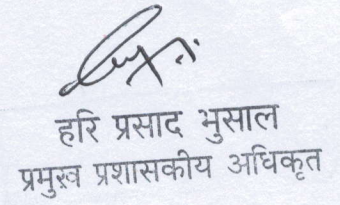 हरि प्रसाद भुसाल
प्रमुख प्रशासकीय अधिकृत